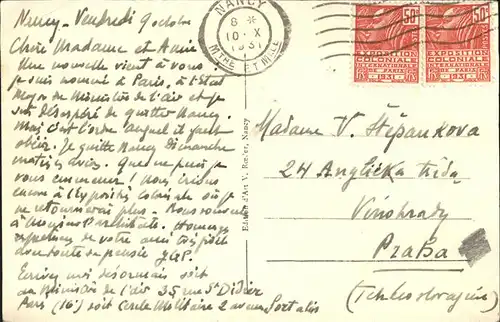 Nancy - Vendredi 9 octobre
Chère Madame et Amie
Une nouvelle vient à vous.
je suis nommé à Paris, à l'Etat
Major du Ministère de l'air et je
suis désespéré de quitter Nancy.
Mais c'est l'ordre auquel il faut
obéir. Je quitte Nancy Dimanche
matin avec. Que ne puis-je
vous emmener ! Nous irions
encore à l'exposition coloniale où je
ne retournerai plus. Nous
à
de votre ami très fidèle
de pensée
Ecrivez moi désormais soit
au Ministère de l'air 35 rue St Didier
Paris (16) soit Cercle Militaire 2 avenue Portalis
NANCY
8 *
10 - X
1931
MTHE ET MLLE
50c
50c
EXPOSITION
COLONIALE
INTERNATIONALE
DE PARIS
1931
EXPOSITION
COLONIALE
INTERNATIONALE
DE PARIS
1931
Edition d'Art V. Rœder, Nancy
Madame V. Štěpankova
24 Anglická třída
Vinohrady
Praha
(Tchécoslovaquie)